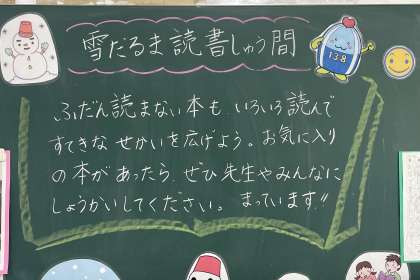 雪だるま読書しゅう間
138
ふだん読まない本も、いろいろ読んで
すてきな せかいを広げよう。お気に入り
の本が あったら、ぜひ 先生やみんなに
しょうかいしてください。 まっています!!